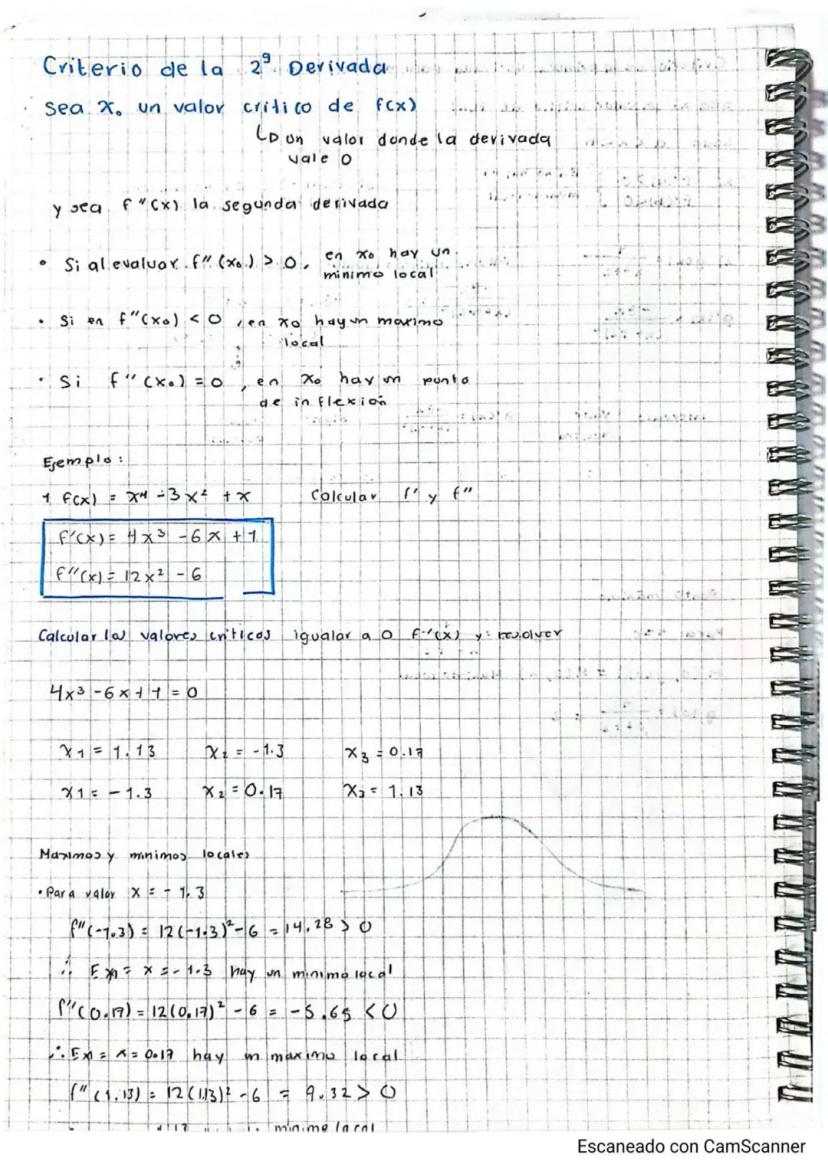 Criterio de la 2ª Derivada
Sea x₀ un valor critico de f(x)
un valor donde la derivada
vale 0
y sea f''(x) la segunda derivada
• Si al evaluar f''(x₀) > 0, en x₀ hay un
minimo local
• Si en f''(x₀) < 0, en x₀ hay un maximo
local
• Si f''(x₀) = 0, en x₀ hay un punto
de inflexión
Ejemplo:
1 f(x) = x⁴ - 3x² + x Calcular f' y f''
f'(x) = 4x³ - 6x + 1
f''(x) = 12x² - 6
Calcular los valores criticos igualar a 0 f'(x) y resolver
4x³ - 6x + 1 = 0
x₁ = 1.13 x₂ = -1.3 x₃ = 0.17
x₁ = -1.3 x₂ = 0.17 x₃ = 1.13
Maximos y minimos locales
• Para valor x = -1.3
f''(-1.3) = 12(-1.3)² - 6 = 14.28 > 0
∴ En = x = -1.3 hay un minimo local
f''(0.17) = 12(0.17)² - 6 = -5.65 < 0
∴ En = x = 0.17 hay un maximo local
f''(1.13) = 12(1.13)² - 6 = 9.32 > 0
minimo local
Escaneado con CamScanner